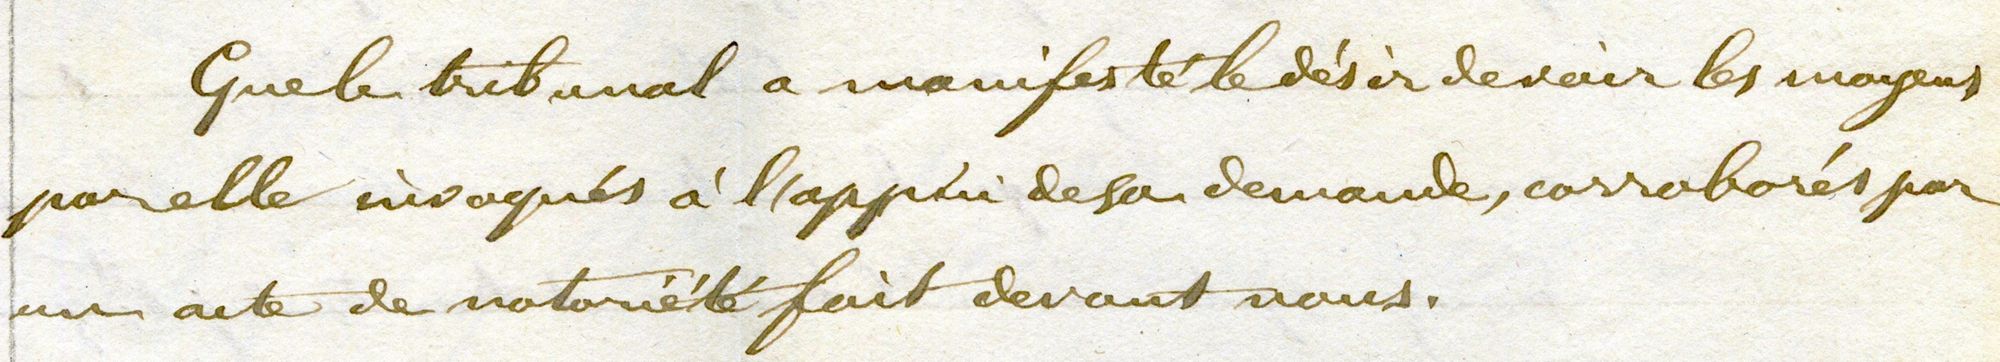 Que le tribunal a manifesté le désir de voir les moyens
par elle invoqués à l'appui de sa demande, corroborés par
un acte de notoriété fait devant nous.